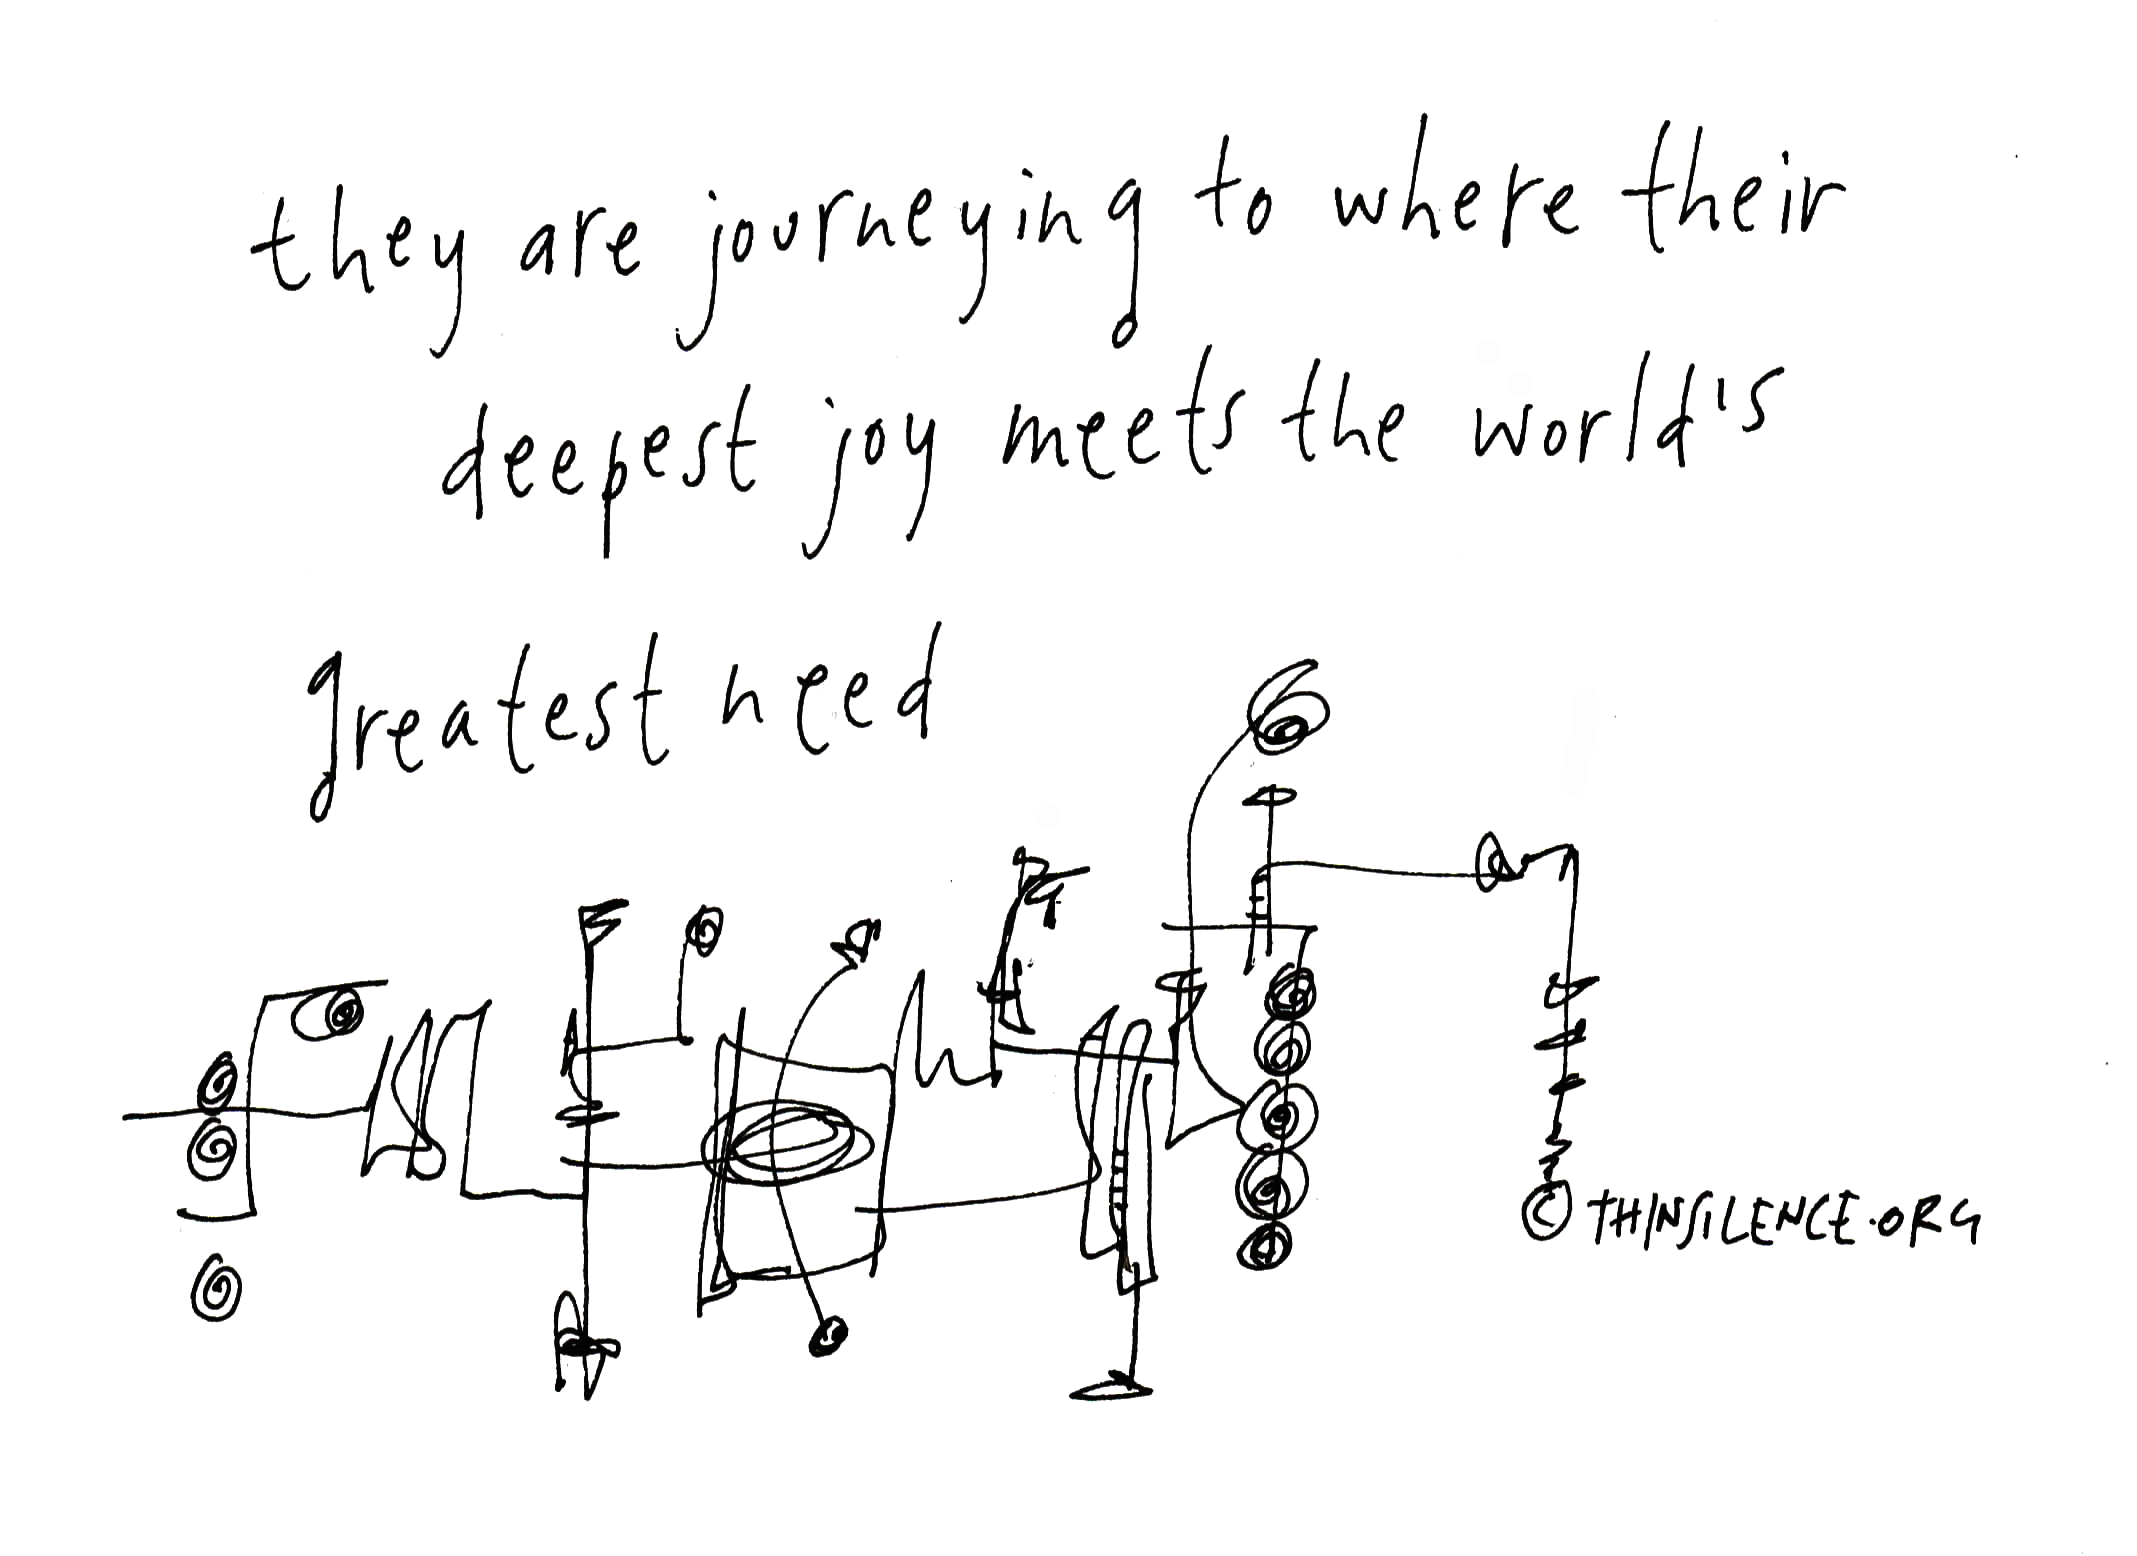 they are journeying to where their
deepest joy meets the world's
greatest need
© THINSILENCE.ORG